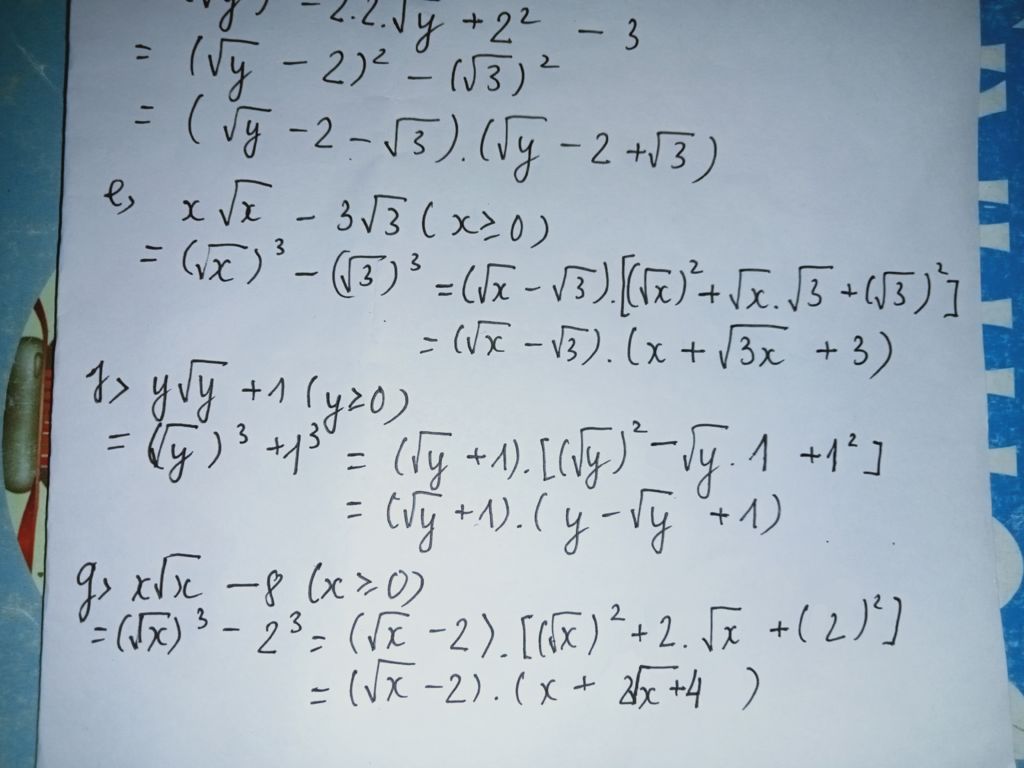 - 2.2.√y + 2² - 3
= (√y - 2)² - (√3)²
= (√y - 2 - √3).(√y - 2 + √3)
e, x√x - 3√3 (x ≥ 0)
= (√x)³ - (√3)³ = (√x - √3).[(√x)² + √x.√3 + (√3)²]
= (√x - √3).(x + √3x + 3)
f> y√y + 1 (y ≥ 0)
= (√y)³ + 1³ = (√y + 1).[(√y)² - √y.1 + 1²]
= (√y + 1).(y - √y + 1)
g> x√x - 8 (x ≥ 0)
= (√x)³ - 2³ = (√x - 2).[(√x)² + 2.√x + (2)²]
= (√x - 2).(x + 2√x + 4)